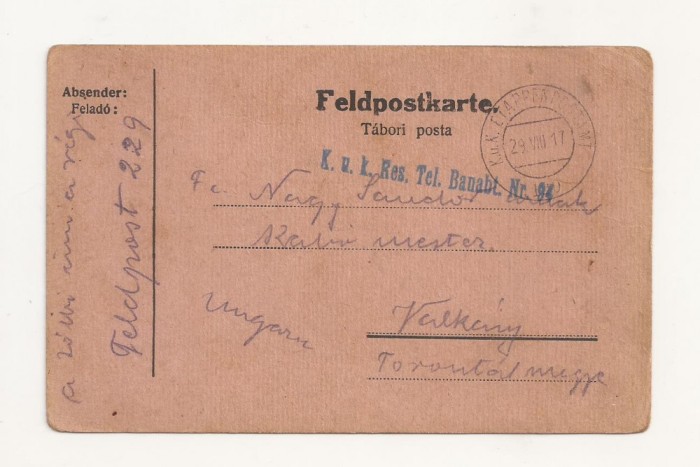 Absender:
Feladó:
a többi cím a régi
Feldpost 229
Feldpostkarte.
Tábori posta
K.u.K. ETAPPENPOSTAMT
29.VIII.17
K. u. k. Res. Tel. Banabt. Nr.
Nagy Sándor
Szabó mester.
Ungarn
Valkány
Torontál megye